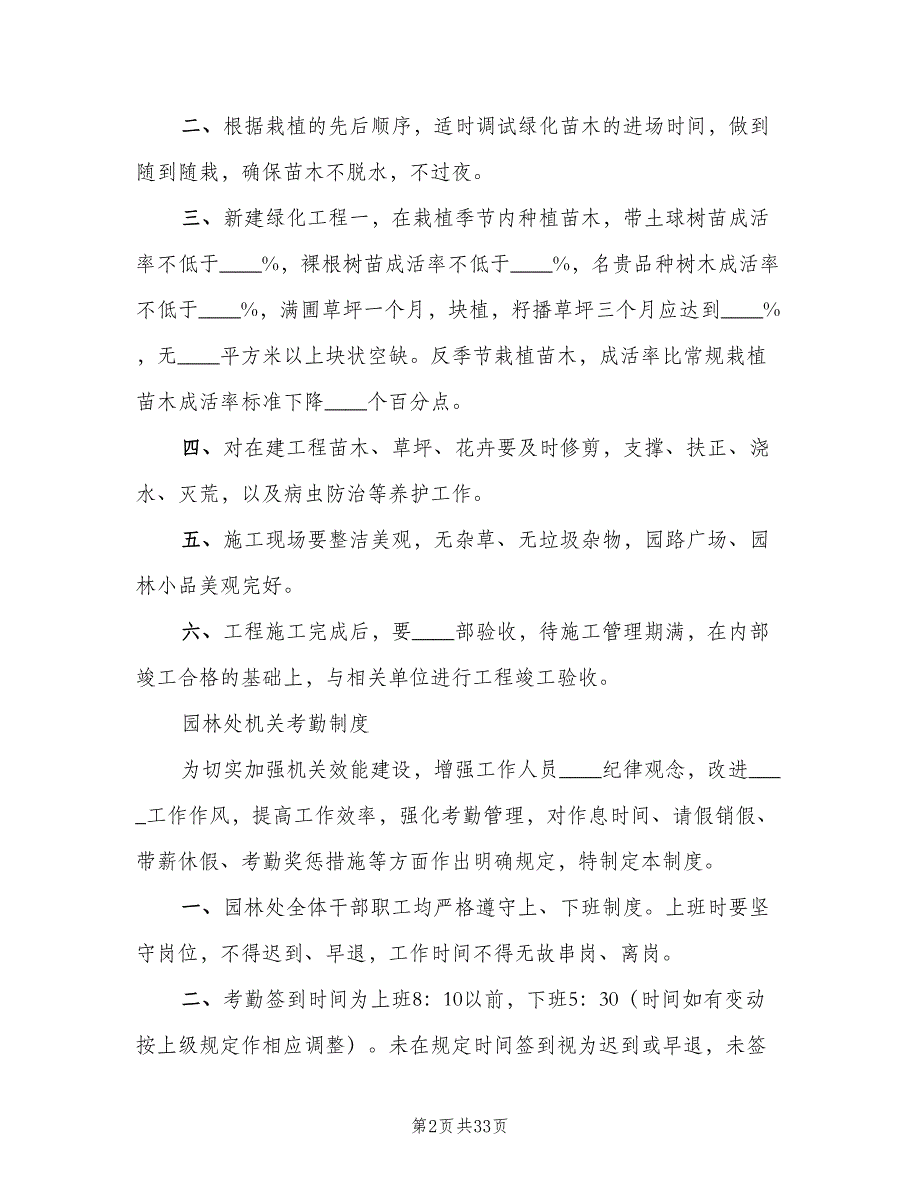 二、根据栽植的先后顺序，适时调试绿化苗木的进场时间，做到
随到随栽，确保苗木不脱水，不过夜。
三、新建绿化工程一，在栽植季节内种植苗木，带土球树苗成活
率不低于____%，裸根树苗成活率不低于____%，名贵品种树木成活率
不低于____%，满圃草坪一个月，块植，籽播草坪三个月应达到____%
，无____平方米以上块状空缺。反季节栽植苗木，成活率比常规栽植
苗木成活率标准下降____个百分点。
四、对在建工程苗木、草坪、花卉要及时修剪，支撑、扶正、浇
水、灭荒，以及病虫防治等养护工作。
五、施工现场要整洁美观，无杂草、无垃圾杂物，园路广场、园
林小品美观完好。
六、工程施工完成后，要____部验收，待施工管理期满，在内部
竣工合格的基础上，与相关单位进行工程竣工验收。
园林处机关考勤制度
为切实加强机关效能建设，增强工作人员____纪律观念，改进___
_工作作风，提高工作效率，强化考勤管理，对作息时间、请假销假、
带薪休假、考勤奖惩措施等方面作出明确规定，特制定本制度。
一、园林处全体干部职工均严格遵守上、下班制度。上班时要坚
守岗位，不得迟到、早退，工作时间不得无故串岗、离岗。
二、考勤签到时间为上班8：10以前，下班5：30（时间如有变动
按上级规定作相应调整）。未在规定时问签到视为迟到或早退，未签
第2页共33页